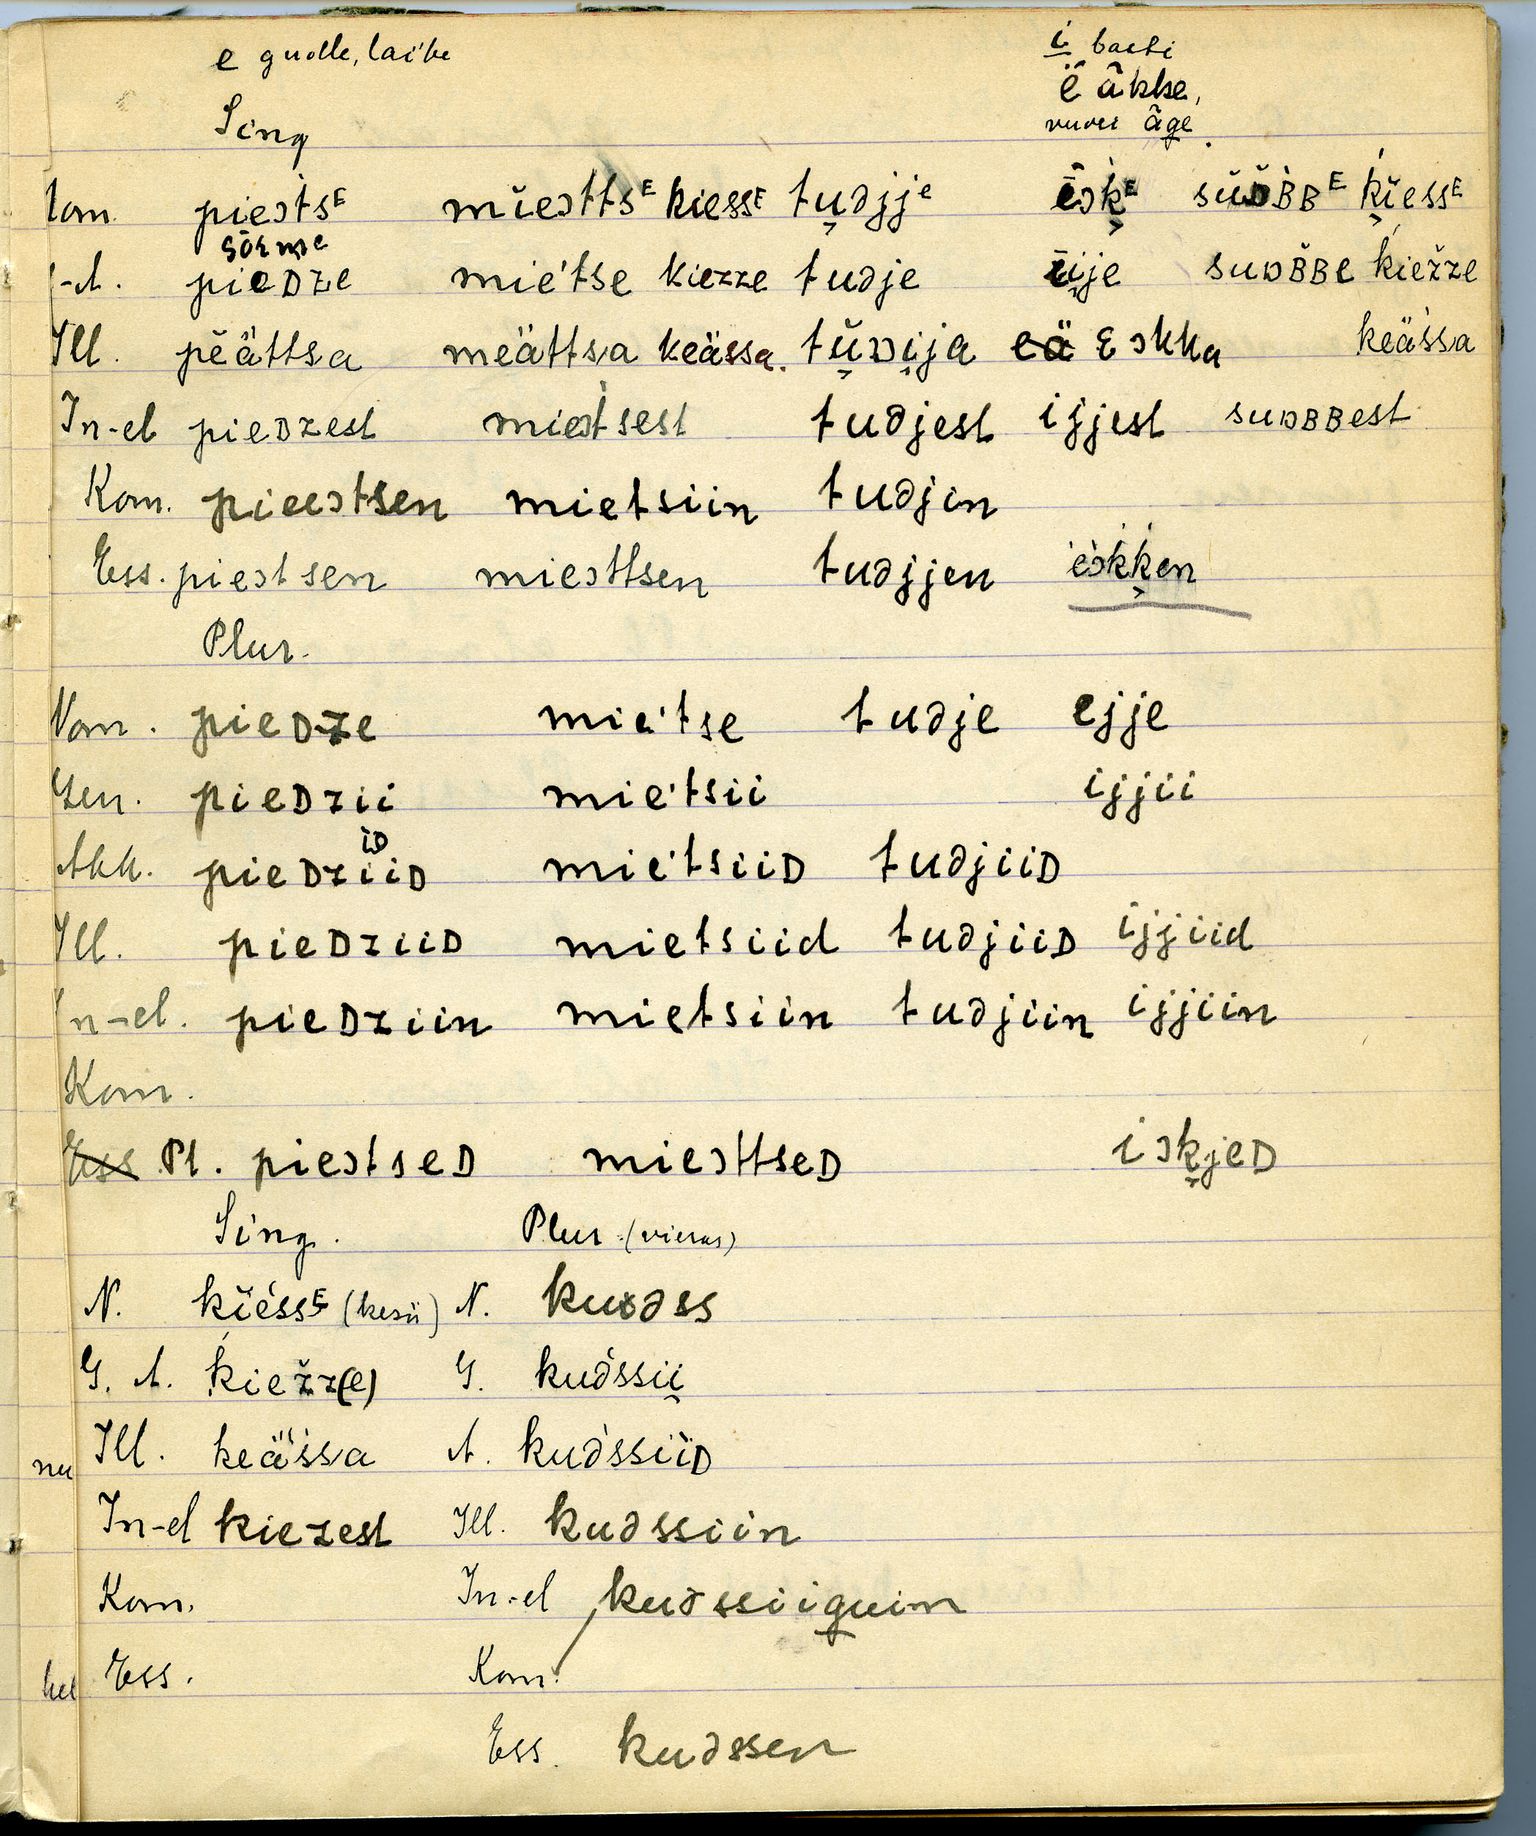 e guolle, laibe
i basti
ē âkke,
vuoei âge.
Sing
Nom. pieɔtsᴱ mĭeɔttsᴱ kiessᴱ tuəjjᵉ ēɔkᴱ sŭɔʙʙᴱ kĭessᴱ
sörmᵉ
-A. pieᴅze mie'tse kiezze tuəje iije suɔʙʙe kiežze
Ill. pĕättsa meättsa keässa. tŭɔija eä ɛɔkka keässa
In-el pieᴅzest mieɔtsest tuəjest ijjest suɔʙʙest
Kom. pieeɔtsen mietsiin tuəjin
Ess. pieɔtsen mieɔttsen tuəjjen eɔkken
Plur.
Nom. pieᴅze mie'tse tuəje ejje
Gen. pieᴅzii mie'tsii ijjii
iᴅ
Akk. pieᴅziiᴅ mie'tsiiᴅ tuəjiiᴅ
Ill. pieᴅziiᴅ mietsiid tuəjiiᴅ ijjiid
In-el. pieᴅziin mietsiin tuəjiin ijjiin
Kom.
Ess Pl. pieɔtseᴅ mieɔttseᴅ iɔkjeᴅ
Sing. Plur. (vieras)
N. kĭéssᴱ (kesä) N. kuəss
G. A. kiežz(e) G. kuəssii
nu Ill. keässa A. kuəssiiᴅ
In-el kiezest Ill. kuəssiin
Kom. In-el kuəssiiguim
Ess. Kom.
Ess. kuəssen